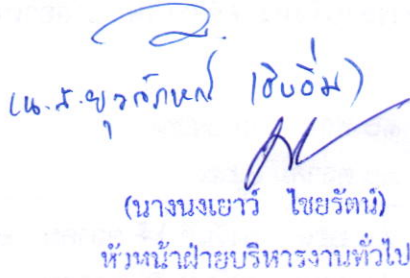 (น.ส.ยุวลักษณ์ เอิบอิ่ม)
(นางนงเยาว์ ไชยรัตน์)
หัวหน้าฝ่ายบริหารงานทั่วไป